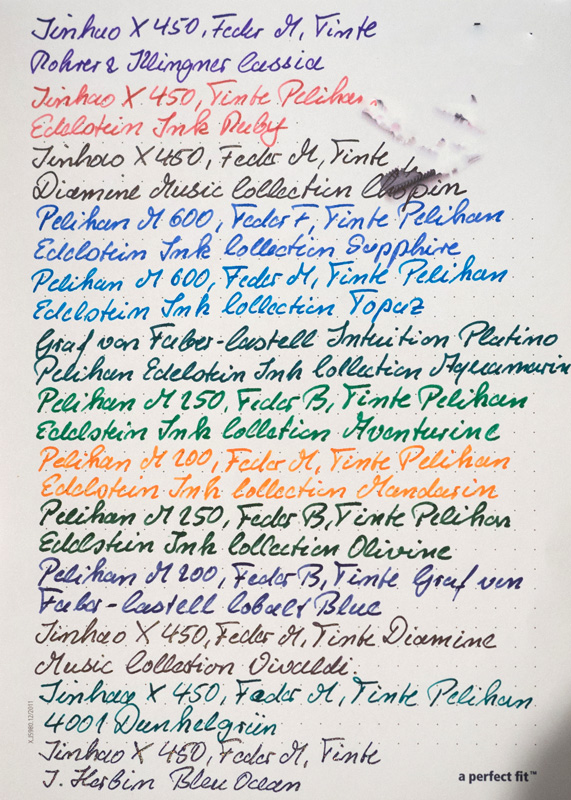 Jinhao X 450, Feder M, Tinte
Rohrer & Klingner Cassia
Jinhao X 450, Tinte Pelikan
Edelstein Ink Ruby
Jinhao X 450, Feder M, Tinte
Diamine Music Collection Chopin
Pelikan M 600, Feder F, Tinte Pelikan
Edelstein Ink Collection Sapphire
Pelikan M 600, Feder M, Tinte Pelikan
Edelstein Ink Collection Topaz
Graf von Faber-Castell Intuition Platino
Pelikan Edelstein Ink Collection Aquamarin
Pelikan M 250, Feder B, Tinte Pelikan
Edelstein Ink Collection Aventurine
Pelikan M 200, Feder M, Tinte Pelikan
Edelstein Ink Collection Mandarin
Pelikan M 250, Feder B, Tinte Pelikan
Edelstein Ink Collection Olivine
Pelikan M 200, Feder B, Tinte Graf von
Faber-Castell Cobalt Blue
Jinhao X 450, Feder M, Tinte Diamine
Music Collection Vivaldi.
Jinhao X 450, Feder M, Tinte Pelikan
4001 Dunkelgrün
Jinhao X 450, Feder M, Tinte
J. Herbin Bleu Ocean
a perfect fit™